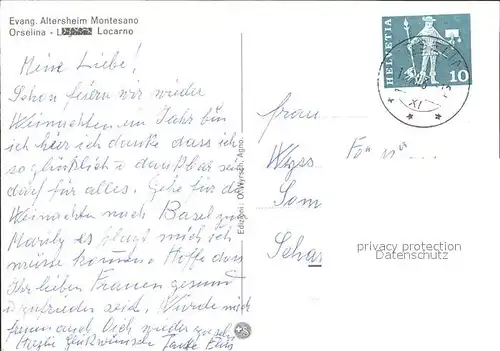 Evang. Altersheim Montesano
Orselina - Locarno
HELVETIA
10
Meine Liebe!
Schon feiern wir wieder
Weinachten ein Jahr bin
ich hier ich danke dass ich
so glücklich u dankbar sein
darf für alles. Gehe für die
Weinachten nach Basel zu
Marily es plagt mich ich
müsse kommen. Hoffe dass
Ihr lieben Frauen gesund
u zufrieden seid. Würde mich
freuen auch Dich wieder
Glückwünsche Tante
Edizioni: O. Wyrsch, Agno
frau
Wyss
Som
Schar
privacy protection
Datenschutz